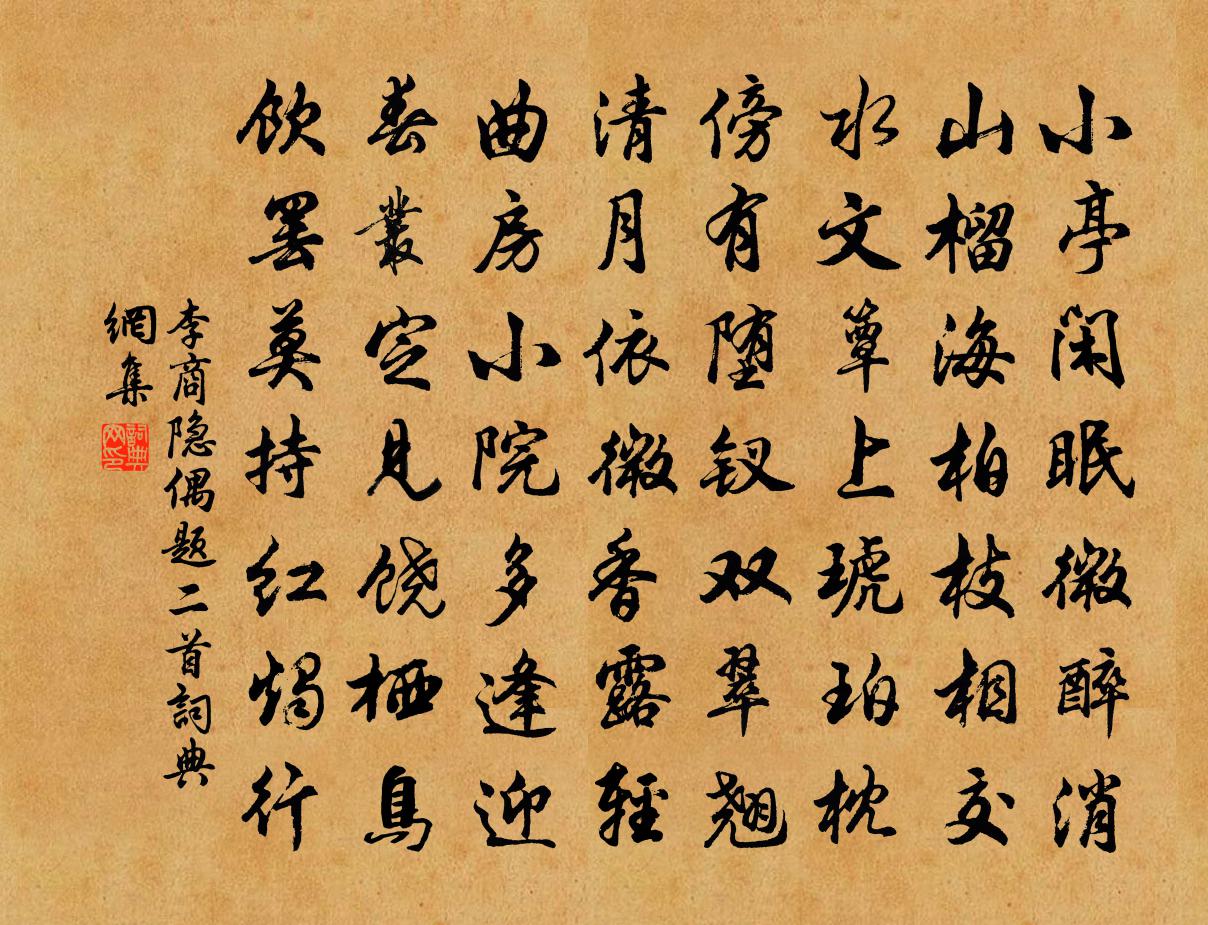 小亭闲眠微醉消
山榴海柏枝相交
水文簟上琥珀枕
傍有堕钗双翠翘
清月依微香露轻
曲房小院多逢迎
春叢定见饶栖鳥
饮罢莫持红烛行
李商隐偶题二首詞典
網集
詞典
网印